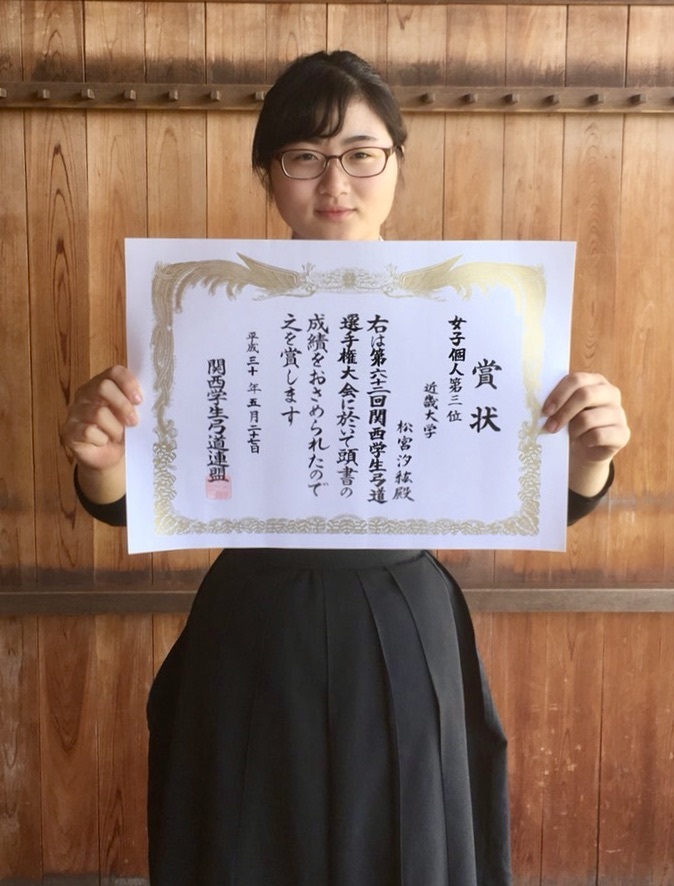 賞状
女子個人第三位
近畿大学
松宮汐 殿
右は第六十二回関西学生弓道
選手権大会に於いて頭書の
成績をおさめられたので
之を賞します
平成三十年五月二十七日
関西学生弓道連盟